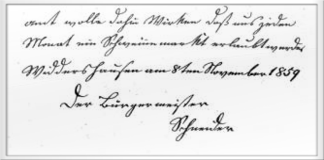 amt wolle dahin Wirken daß uns jeden
Monat ein Schweinmarkt erlaubt werde
Widdershausen am 8ten November 1859
Der Bürgermeister
Schneider